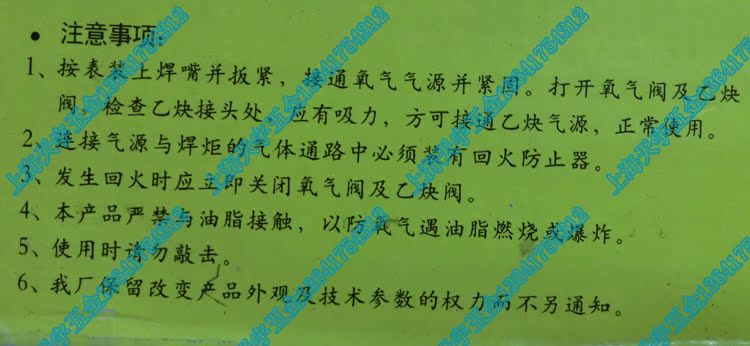 • 注意事项:
1、按表装上焊嘴并扳紧，接通氧气气源并紧固。打开氧气阀及乙炔
阀，检查乙炔接头处，应有吸力，方可接通乙炔气源，正常使用。
2、连接气源与焊炬的气体通路中必须装有回火防止器。
3、发生回火时应立即关闭氧气阀及乙炔阀。
4、本产品严禁与油脂接触，以防氧气遇油脂燃烧或爆炸。
5、使用时请勿敲击。
6、我厂保留改变产品外观及技术参数的权力而不另通知。
上海天宇五金13641754312